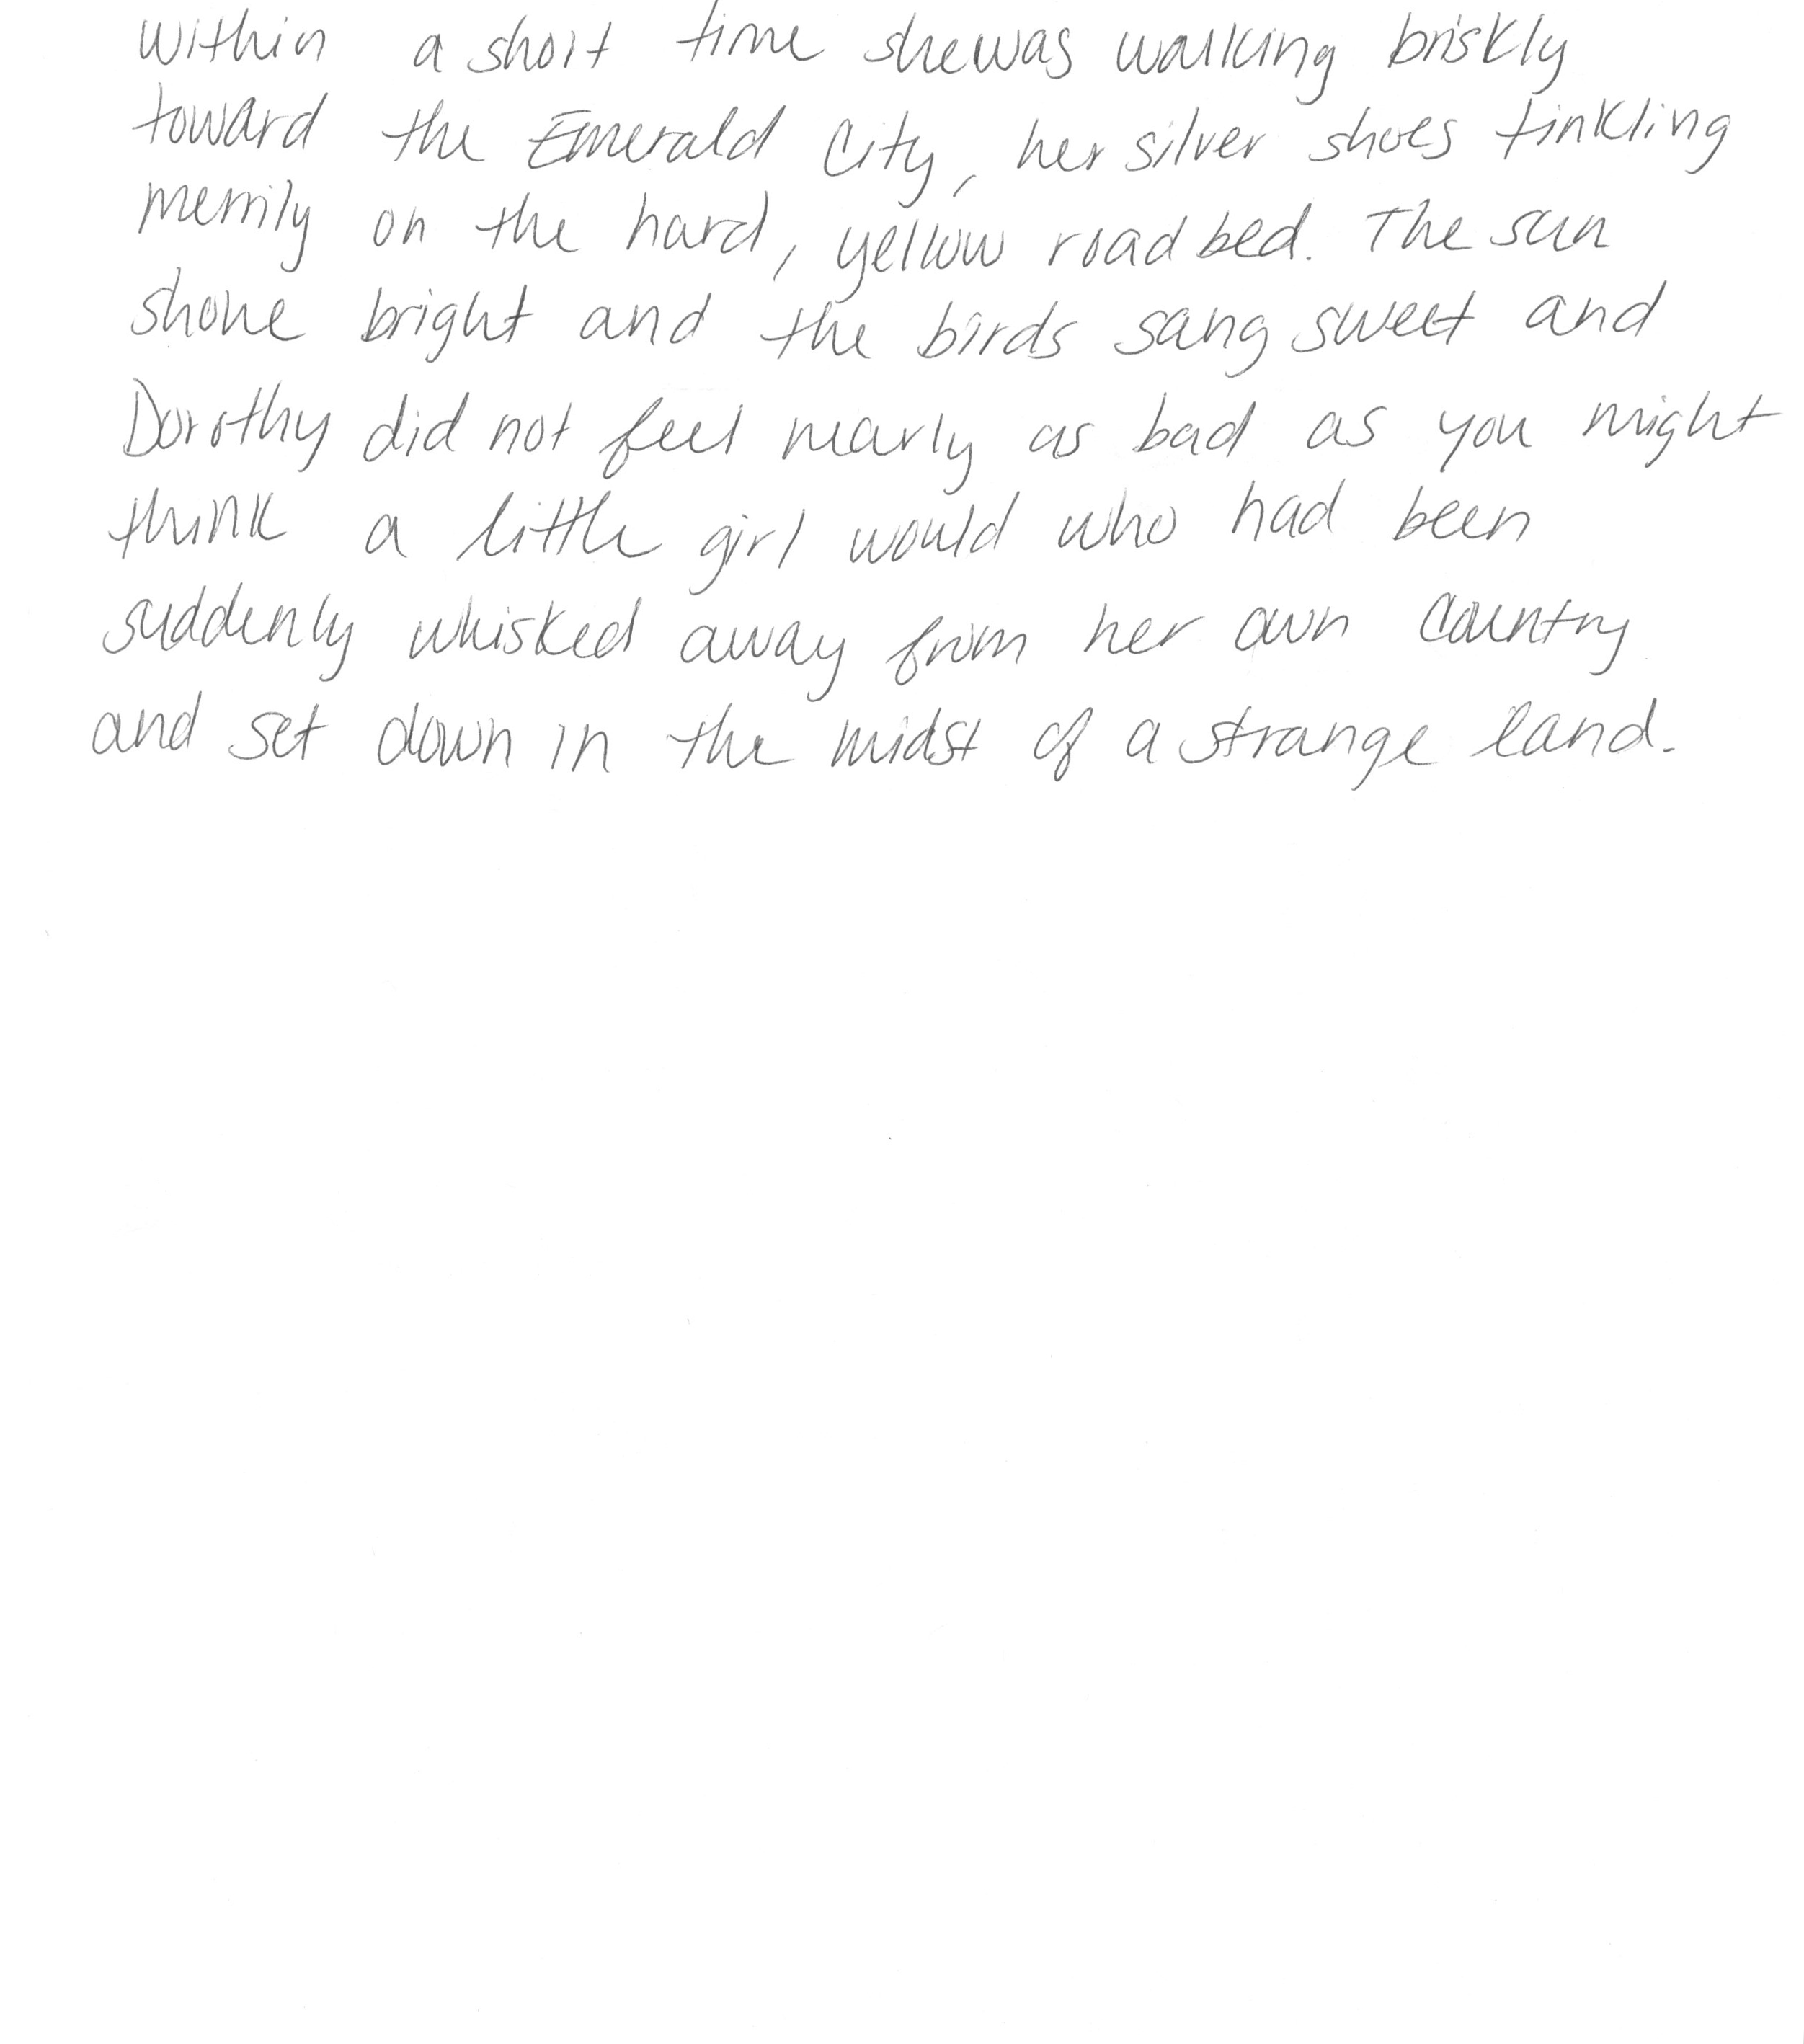 Within a short time she was walking briskly
toward the Emerald City, her silver shoes tinkling
merrily on the hard, yellow road bed. The sun
shone bright and the birds sang sweet and
Dorothy did not feel nearly as bad as you might
think a little girl would who had been
suddenly whisked away from her own country
and set down in the midst of a strange land.